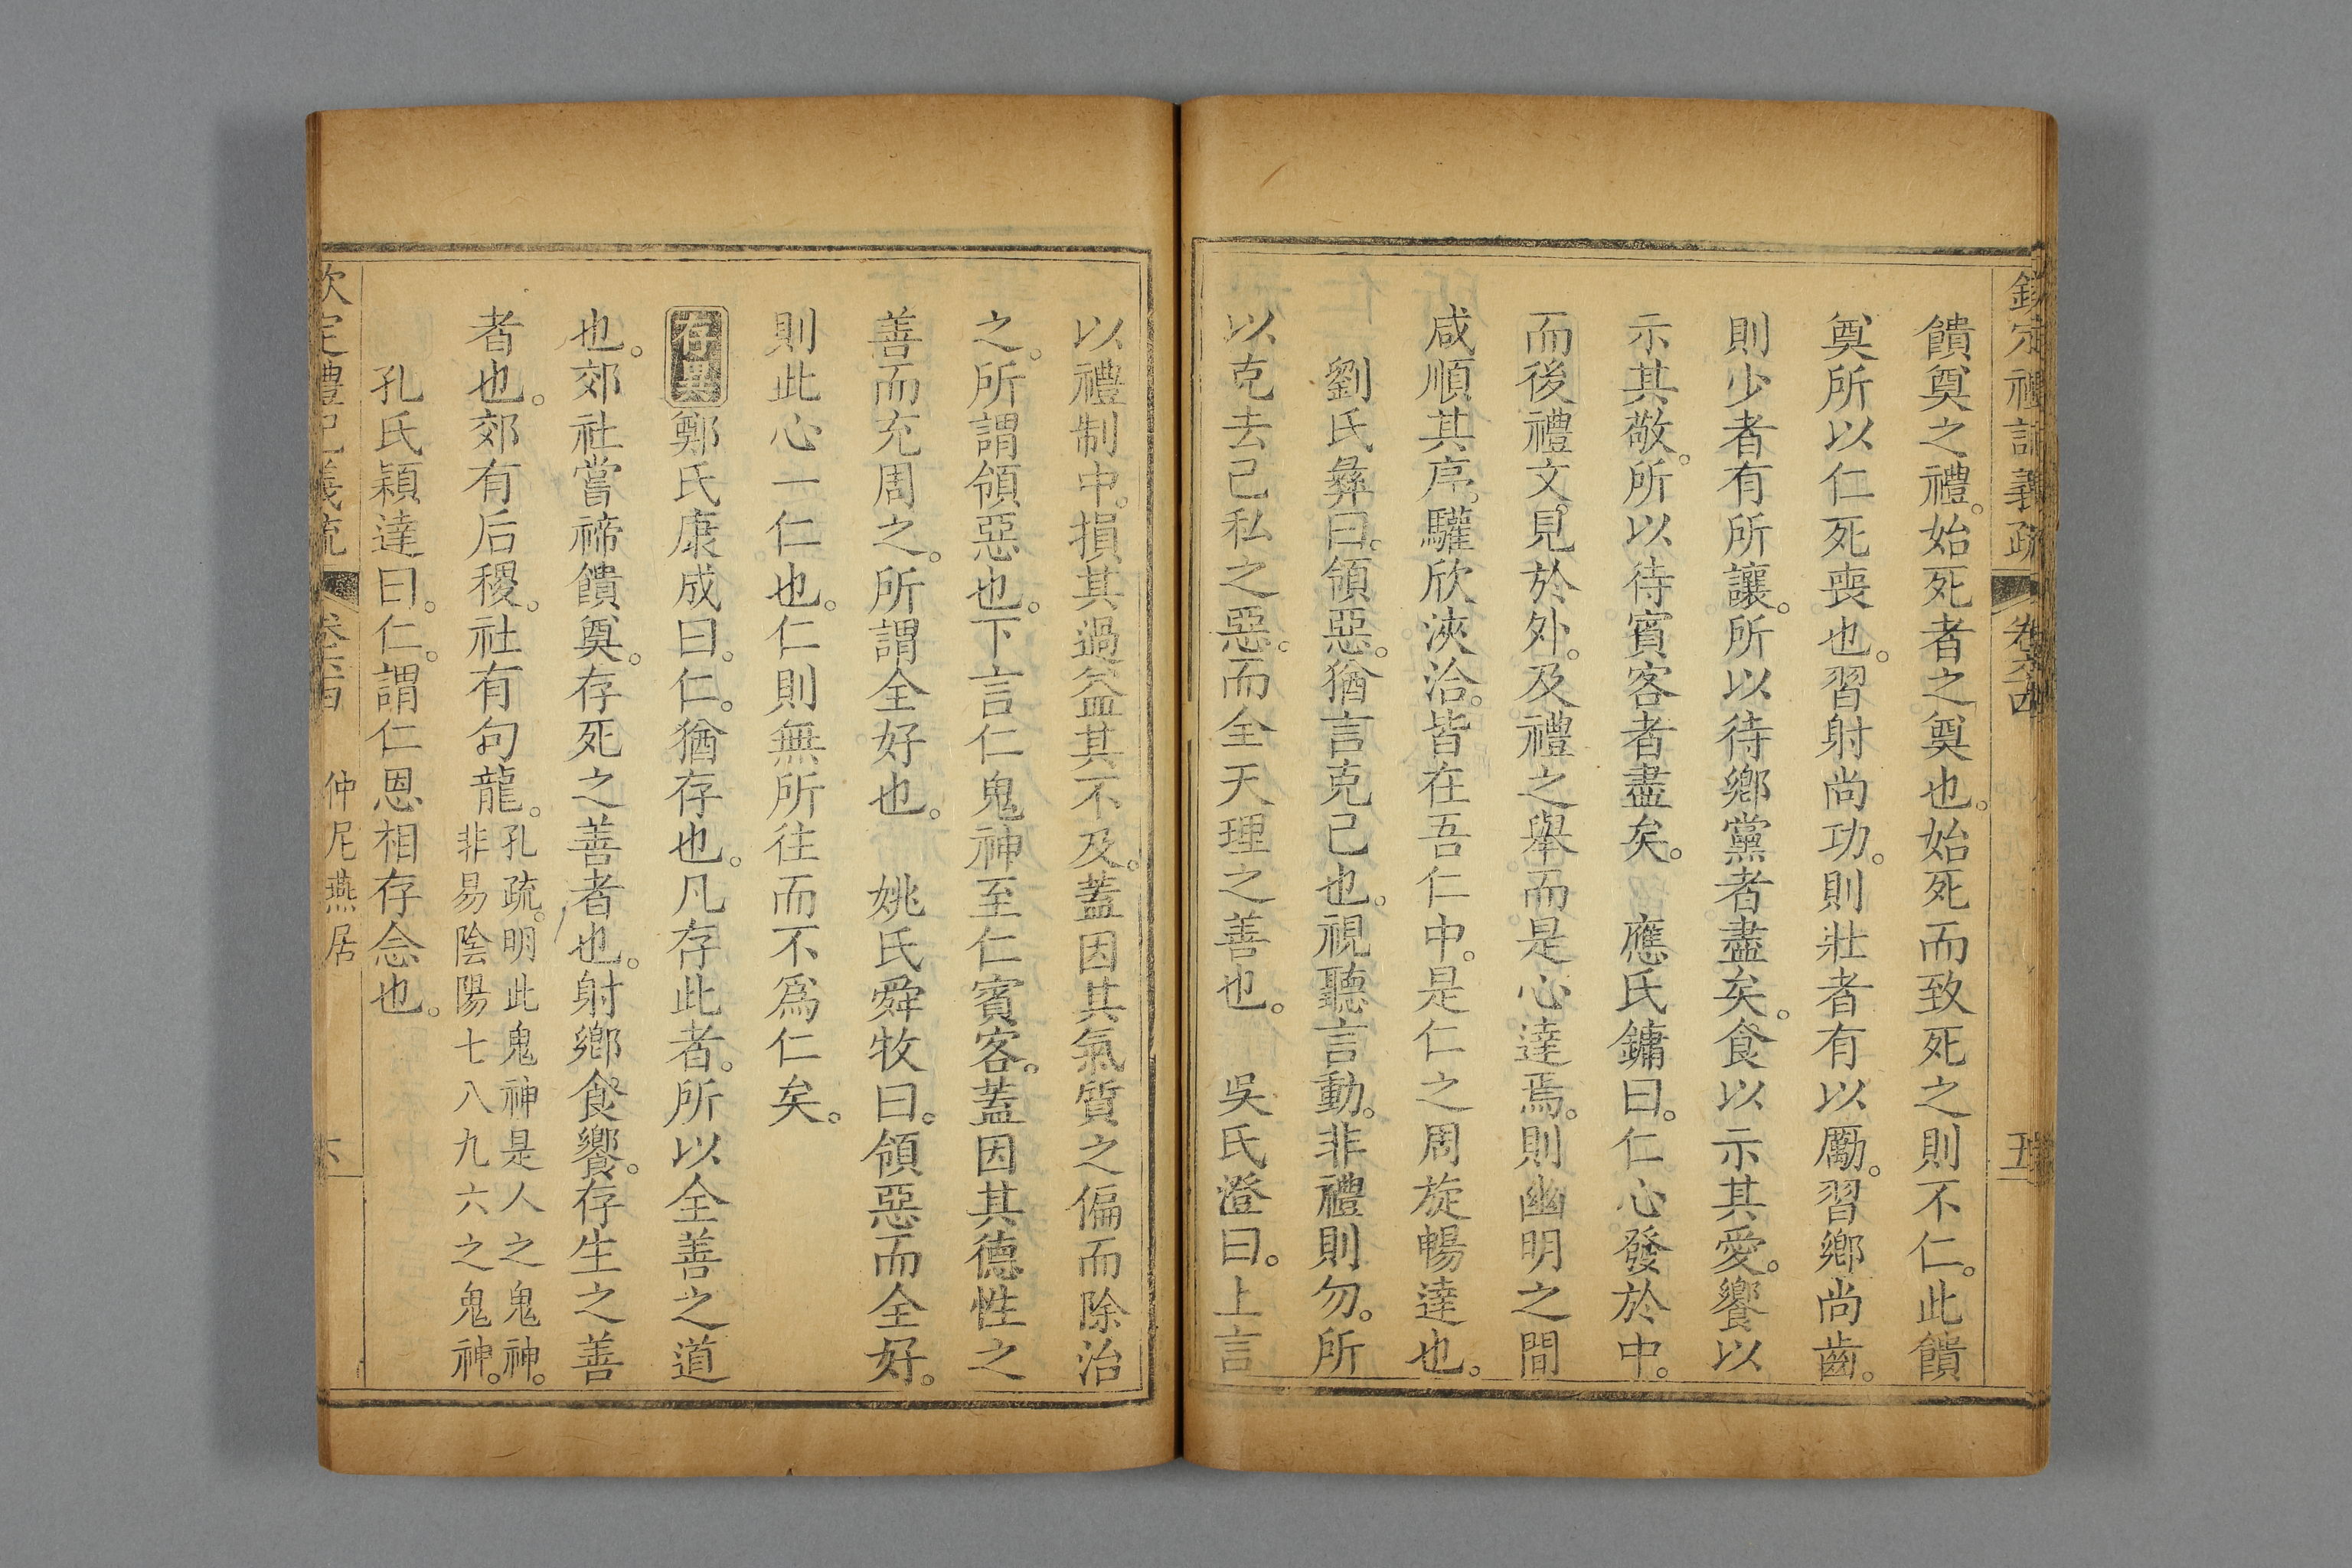 欽定禮記義疏 卷六十四 五
饋奠之禮。始死者之奠也。始死而致死之則不仁。此饋
奠所以仁死喪也。習射尚功。則壯者有以勵。習鄉尚齒。
則少者有所讓。所以待鄉黨者盡矣。食以示其愛。饗以
示其敬。所以待賓客者盡矣。 應氏鏞曰。仁心發於中。
而後禮文。見於外。及禮之舉而是心達焉。則幽明之間
咸順其序。驩欣浹洽。皆在吾仁中。是仁之周旋暢達也。
劉氏彝曰。領惡。猶言克己也。視聽言動。非禮則勿。所
以克去己私之惡。而全天理之善也。 吳氏澄曰。上言
以禮制中。損其過益其不及。蓋因其氣質之偏而除治
之。所謂領惡也。下言仁鬼神至仁賓客。蓋因其德性之
善而充周之。所謂全好也。 姚氏舜牧曰。領惡而全好。
則此心一仁也。仁則無所往而不爲仁矣。
存異 鄭氏康成曰。仁。猶存也。凡存此者。所以全善之道
也。郊社嘗禘饋奠。存死之善者也。射鄉食饗。存生之善
者也。郊有后稷。社有句龍。孔疏。明此鬼神是人之鬼神。
非易陰陽七八九六之鬼神。
孔氏穎達曰。仁。謂仁恩相存念也。
欽定禮記義疏 仲尼燕居 六